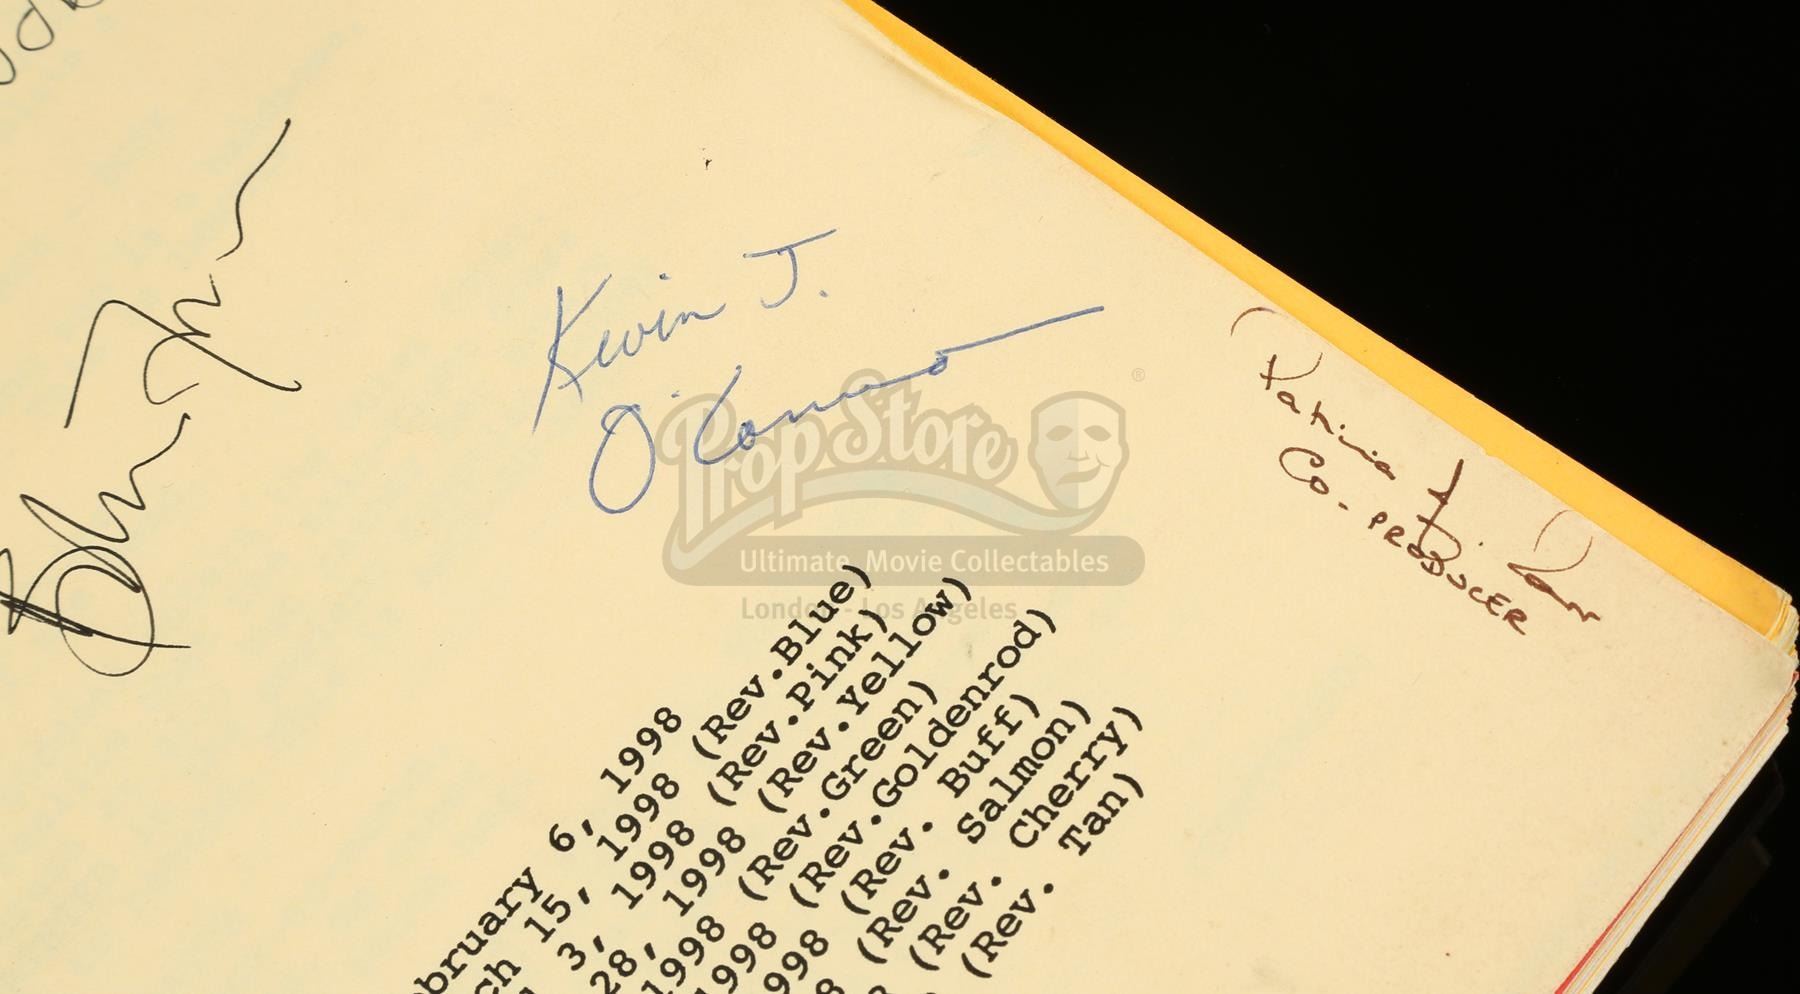 Kevin J.
O'Connor
Patricia
CO-PRODUCER
PropStore
®
Ultimate Movie Collectables
London - Los Angeles
bruary 6, 1998
ch 15, 1998 (Rev.Blue)
3, 1998 (Rev.Pink)
28, 1998 (Rev.Yellow)
1998 (Rev.Green)
1998 (Rev.Goldenrod)
998 (Rev. Buff)
8 (Rev. Salmon)
(Rev. Cherry)
(Rev. Tan)